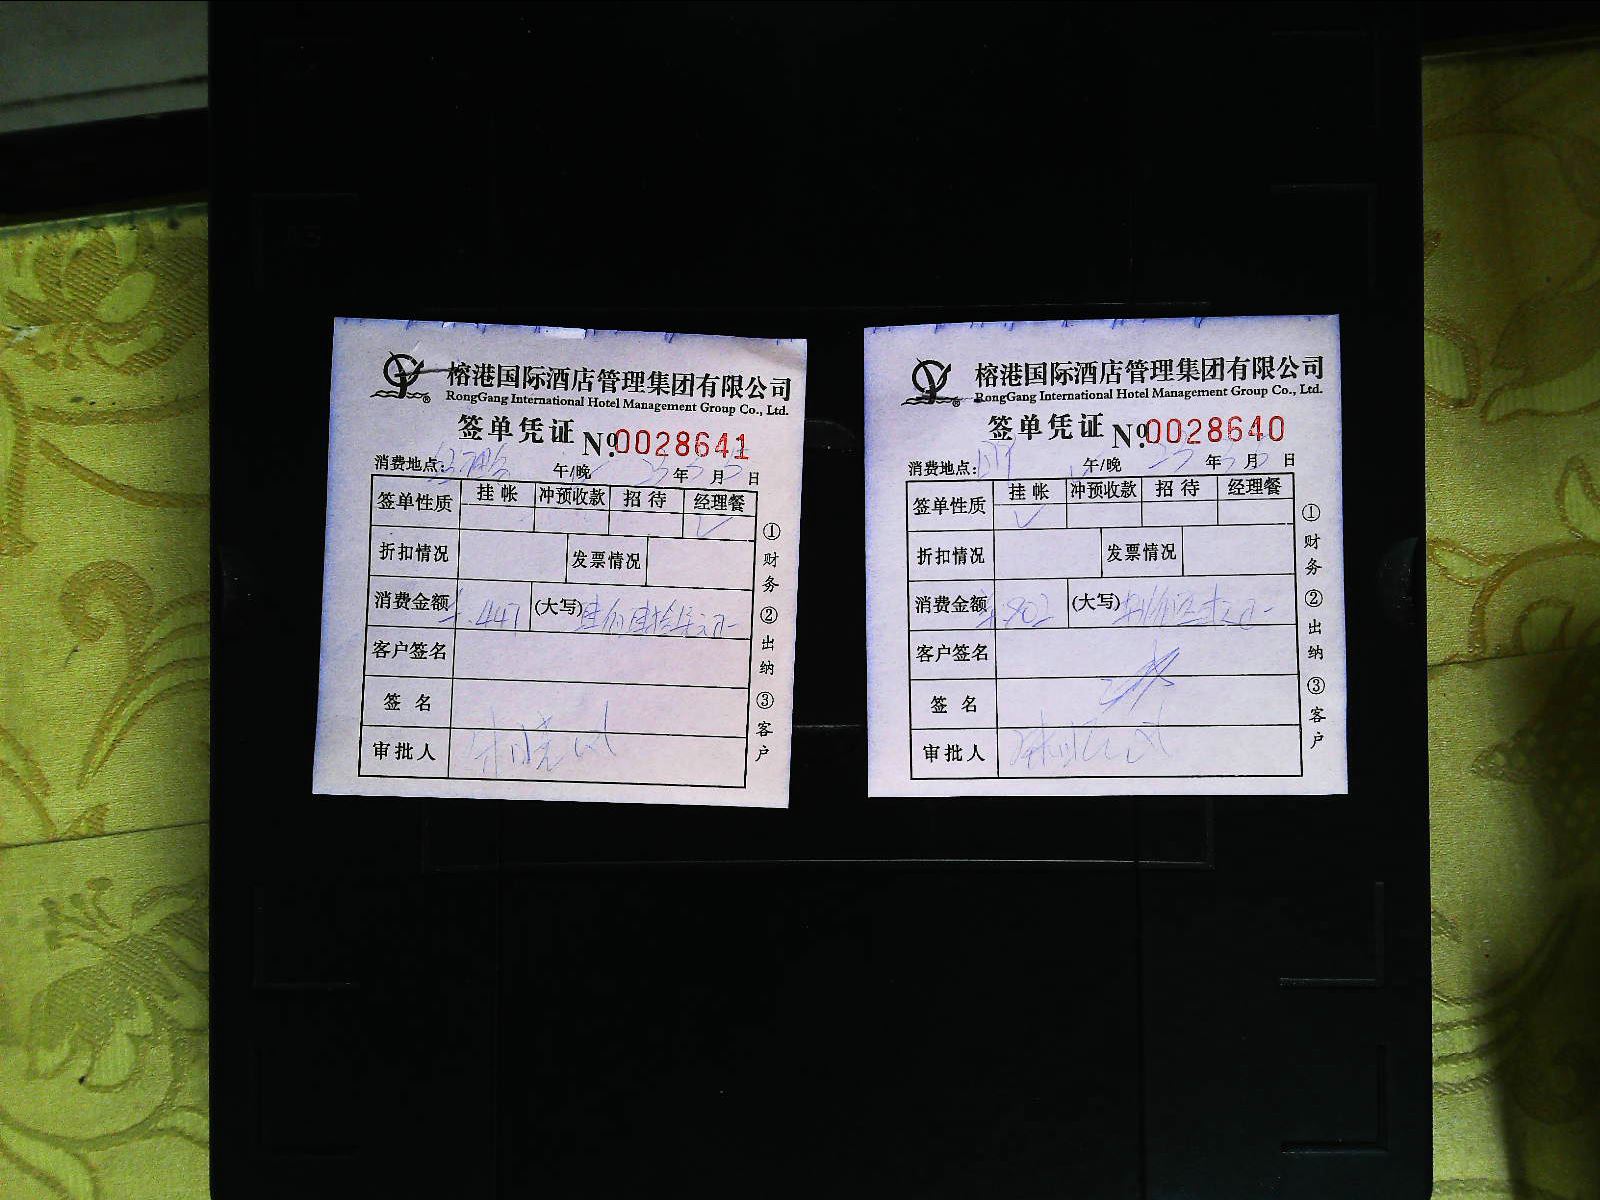 榕港国际酒店管理集团有限公司
RongGang International Hotel Management Group Co., Ltd.
签单凭证 Nº 0028641
消费地点: 午/晚 23年 月 日
签单性质 挂帐 冲预收款 招待 经理餐
✓
折扣情况 发票情况
消费金额 ¥.447 (大写)肆佰肆拾柒元
客户签名
签名
审批人
①财务 ②出纳 ③客户
榕港国际酒店管理集团有限公司
RongGang International Hotel Management Group Co., Ltd.
签单凭证 Nº 0028640
消费地点: 午/晚 23年 月 日
签单性质 挂帐 冲预收款 招待 经理餐
✓
折扣情况 发票情况
消费金额 ¥.802 (大写)
客户签名
签名
审批人
①财务 ②出纳 ③客户